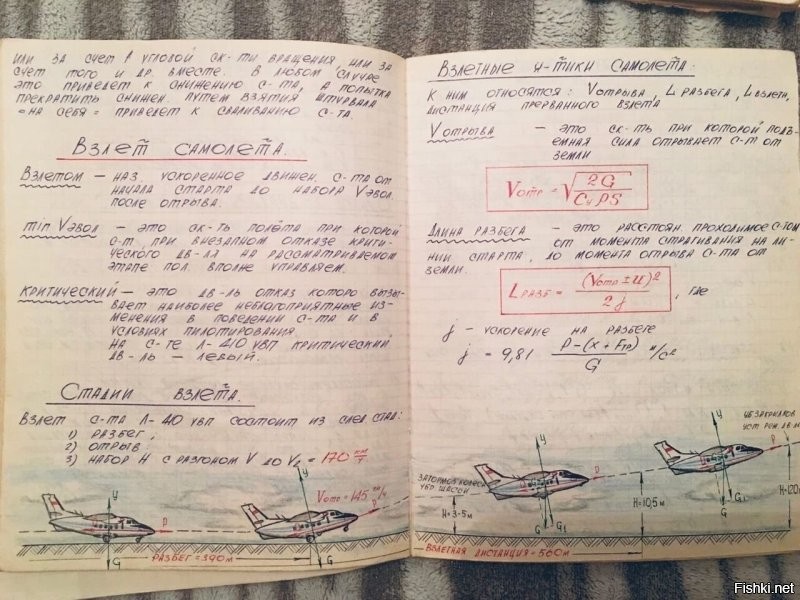 ИЛИ ЗА СЧЕТ ↑ УГЛОВОЙ СК-ТИ ВРАЩЕНИЯ, ИЛИ ЗА
СЧЕТ ТОГО И ДР. ВМЕСТЕ. В ЛЮБОМ СЛУЧАЕ
ЭТО ПРИВЕДЕТ К СНИЖЕНИЮ С-ТА, А ПОПЫТКА
ПРЕКРАТИТЬ СНИЖЕН. ПУТЕМ ВЗЯТИЯ ШТУРВАЛА
"НА СЕБЯ" ПРИВЕДЕТ К СВАЛИВАНИЮ С-ТА.
ВЗЛЕТ САМОЛЕТА.
ВЗЛЕТОМ — НАЗ. УСКОРЕННОЕ ДВИЖЕН. С-ТА ОТ
НАЧАЛА СТАРТА ДО НАБОРА Vэвол.
ПОСЛЕ ОТРЫВА.
min Vэвол — ЭТО СК-ТЬ ПОЛЁТА ПРИ КОТОРОЙ
С-Т ПРИ ВНЕЗАПНОМ ОТКАЗЕ КРИТИ-
ЧЕСКОГО ДВ-ЛЯ НА РАССМАТРИВАЕМОМ
ЭТАПЕ ПОЛ. ВПОЛНЕ УПРАВЛЯЕМ.
КРИТИЧЕСКИЙ — ЭТО ДВ-ЛЬ ОТКАЗ КОТОРО ВЫЗЫ-
ВАЕТ НАИБОЛЕЕ НЕБЛАГОПРИЯТНЫЕ ИЗ-
МЕНЕНИЯ В ПОВЕДЕНИИ С-ТА И В
УСЛОВИЯХ ПИЛОТИРОВАНИЯ.
НА С-ТЕ Л-410 УВП КРИТИЧЕСКИЙ
ДВ-ЛЬ — ЛЕВЫЙ.
СТАДИИ ВЗЛЕТА.
ВЗЛЕТ С-ТА Л-410 УВП СОСТОИТ ИЗ СЛЕД. СТАД:
1) РАЗБЕГ,
2) ОТРЫВ
3) НАБОР Н С РАЗГОНОМ V ДО V₂ = 170 км/ч
У
Р
G
Vотр = 145 км/ч
G
РАЗБЕГ = 390 м
ВЗЛЕТНЫЕ Х-ТИКИ САМОЛЕТА.
К НИМ ОТНОСЯТСЯ: V ОТРЫВА, L РАЗБЕГА, L ВЗЛЕТН,
ДИСТАНЦИЯ ПРЕРВАННОГО ВЗЛЕТА
V ОТРЫВА — ЭТО СК-ТЬ ПРИ КОТОРОЙ ПОДЪ-
ЕМНАЯ СИЛА ОТРЫВАЕТ С-Т ОТ
ЗЕМЛИ
Vотр = √(2G / Cу ρS)
ДЛИНА РАЗБЕГА — ЭТО РАССТОЯН. ПРОХОДИМОЕ С-ТОМ
ОТ МОМЕНТА СТРАГИВАНИЯ НА ЛИ-
НИИ СТАРТА, ДО МОМЕНТА ОТРЫВА С-ТА ОТ
ЗЕМЛИ.
L РАЗБ = (Vотр ± U)² / 2j , где
j - УСКОРЕНИЕ НА РАЗБЕГЕ
j = 9,81 P-(X + Fтр) / G м/с²
ЗАТОРМОЗ КОЛЕСА
УБР ШАССИ
Н=3-5м
У
Р
G G₁
Н=10,5м
У
Р
G G₁
ВЗЛЕТНАЯ ДИСТАНЦИЯ = 560 м
Fishki.net